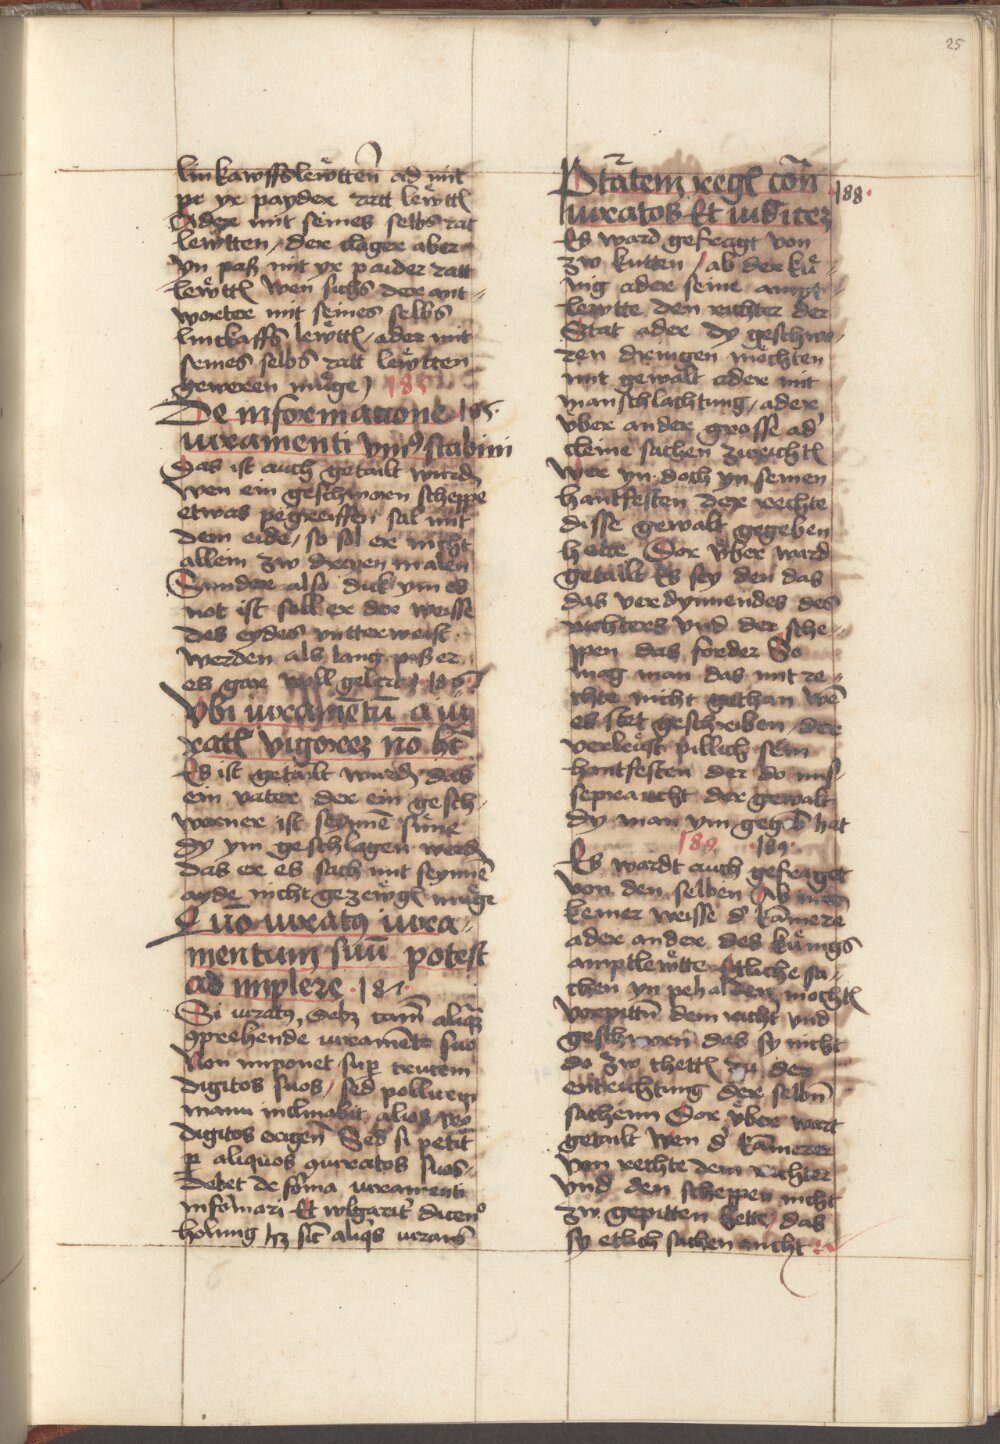 25
linkawffslewtten ad mit
pr yr payder ratt lewttn
Oder mit seines selbs rat
lewtten / der clager aber
yn pass mit yr paider ratt
lewttn wen suchs der ant-
worter mit seines selbs
linckaffs lewttn / ader mit
seines selbs ratt lewtten
geweren muge) 185
De informacione 185.
iuramenti vnius scabini
Das ist auch getailt wurdn
wen ein geschworn scheppe
etwas pegreiffen sal mit
dem eide / so sol er nicht
allein zw dreyen malen
Sunder also dick ym es
not ist soll er der weisse
des eydes vntterweist
werden als lang piss er
es gar woll gelernt 186
Vbi iuramentu a iu
ratis vigorez no ht
Es ist getailt wurdn das
ein vater der ein gesch-
worner ist seyme sune
dy ym geschlagen werdn
das er es sach mit seyme
ayde nicht gezewgn muge
Quo iuratus iura-
mentum suu potest
ad implere .187.
Si iuratus, debz cam aliqua
9prehende iuramento suo
Non imponet sup crucem
digitos suos / sed pollicem
manu inclinabit alios vero
digitos erigens Sed si petit
p aliquos 9iuratos suos
Debet de forma iuramenti
informari Et wlgarit dicendo
holung hz sic aliqs iurans
Ptatem regis con
iuratos Et iudicez
188.
Es ward gefragt von
zw kutten / ab der ku-
nig ader seine ampt-
lewtte den richter der
Stat ader dy geschwo-
ren dreingen mochten
mit gewalt ader mit
manschlachtung / ader
vber ander grosse ad
cleine sachen zwrichtn
Wer yn doch yn seinen
hantfesten der rechte
disse gewalt gegeben
hette Dor vber ward
getailt Es sey den das
das verdynnendes des
richters vnd der sche-
ppen das forder So
mag man das mit re-
chte nicht gethan We
es stet geschreiben / der
verleust pillich sein
hantfesten der do mis-
sepraucht der gewalt
dy man ym gegeb hat
189 .189.
Es wardt auch gefraget
von den selben Ab in
keiner weisse d kamere
ader ander des kunigs
amptlewtte etliche sa-
chen yn pehalden mochtn
vorpittn dem richt vnd
geschworn das sy nicht
do zw thettn zu der
entrichtung der selbn
sachenn Dor vber wart
getailt Wen d kamerer
von rechte dem richter
vnd den scheppen nicht
zw gepitten hette / das
sy etlich sachen nicht